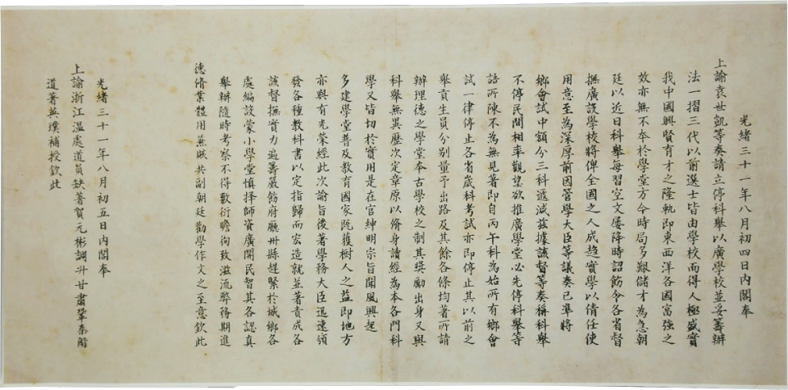 光緒三十一年八月初四日內閣奉
上諭袁世凱等奏請立停科舉以廣學校並妥籌辦
法一摺三代以前選士皆由學校而得人極盛實
我中國興賢育才之隆軌即東西洋各國富強之
效亦無不本於學堂方今時局多艱儲才為急朝
廷以近日科舉每習空文屢降明詔飭令各省督
撫廣設學校將俾全國之人咸趨實學以備任使
用意至為深厚前因管學大臣等議奏已準將
鄉會試中額分三科遞減茲據該督等奏稱科舉
不停民間相率觀望欲推廣學堂必先停科舉等
語所陳不為無見著即自丙午科為始所有鄉會
試一律停止各省歲科考試亦即停止其以前之
舉貢生員分別量予出路及其餘各條均著照所請
辦理總之學堂本古學校之制其獎勵出身又與
科舉無異歷次定章原以脩身讀經為本各門科
學又皆切於實用是在官紳申明宗旨聞風興起
多建學堂普及教育國家既獲樹人之益即地方
亦與有光榮經此次諭旨後著學務大臣迅速頒
發各種教科書以定指歸而宏造就並著責成各
該督撫實力通籌嚴飭府廳州縣趕緊於城鄉各
處徧設蒙小學堂慎擇師資廣開民智其各認真
舉辦隨時考察不得敷衍瞻徇致滋流弊務期進
德脩業體用兼賅共副朝廷勸學作人之至意欽此
光緒三十一年八月初五日內閣奉
上諭浙江溫處道員缺著賀元彬調升甘肅鞏秦階
道著英璞補授欽此